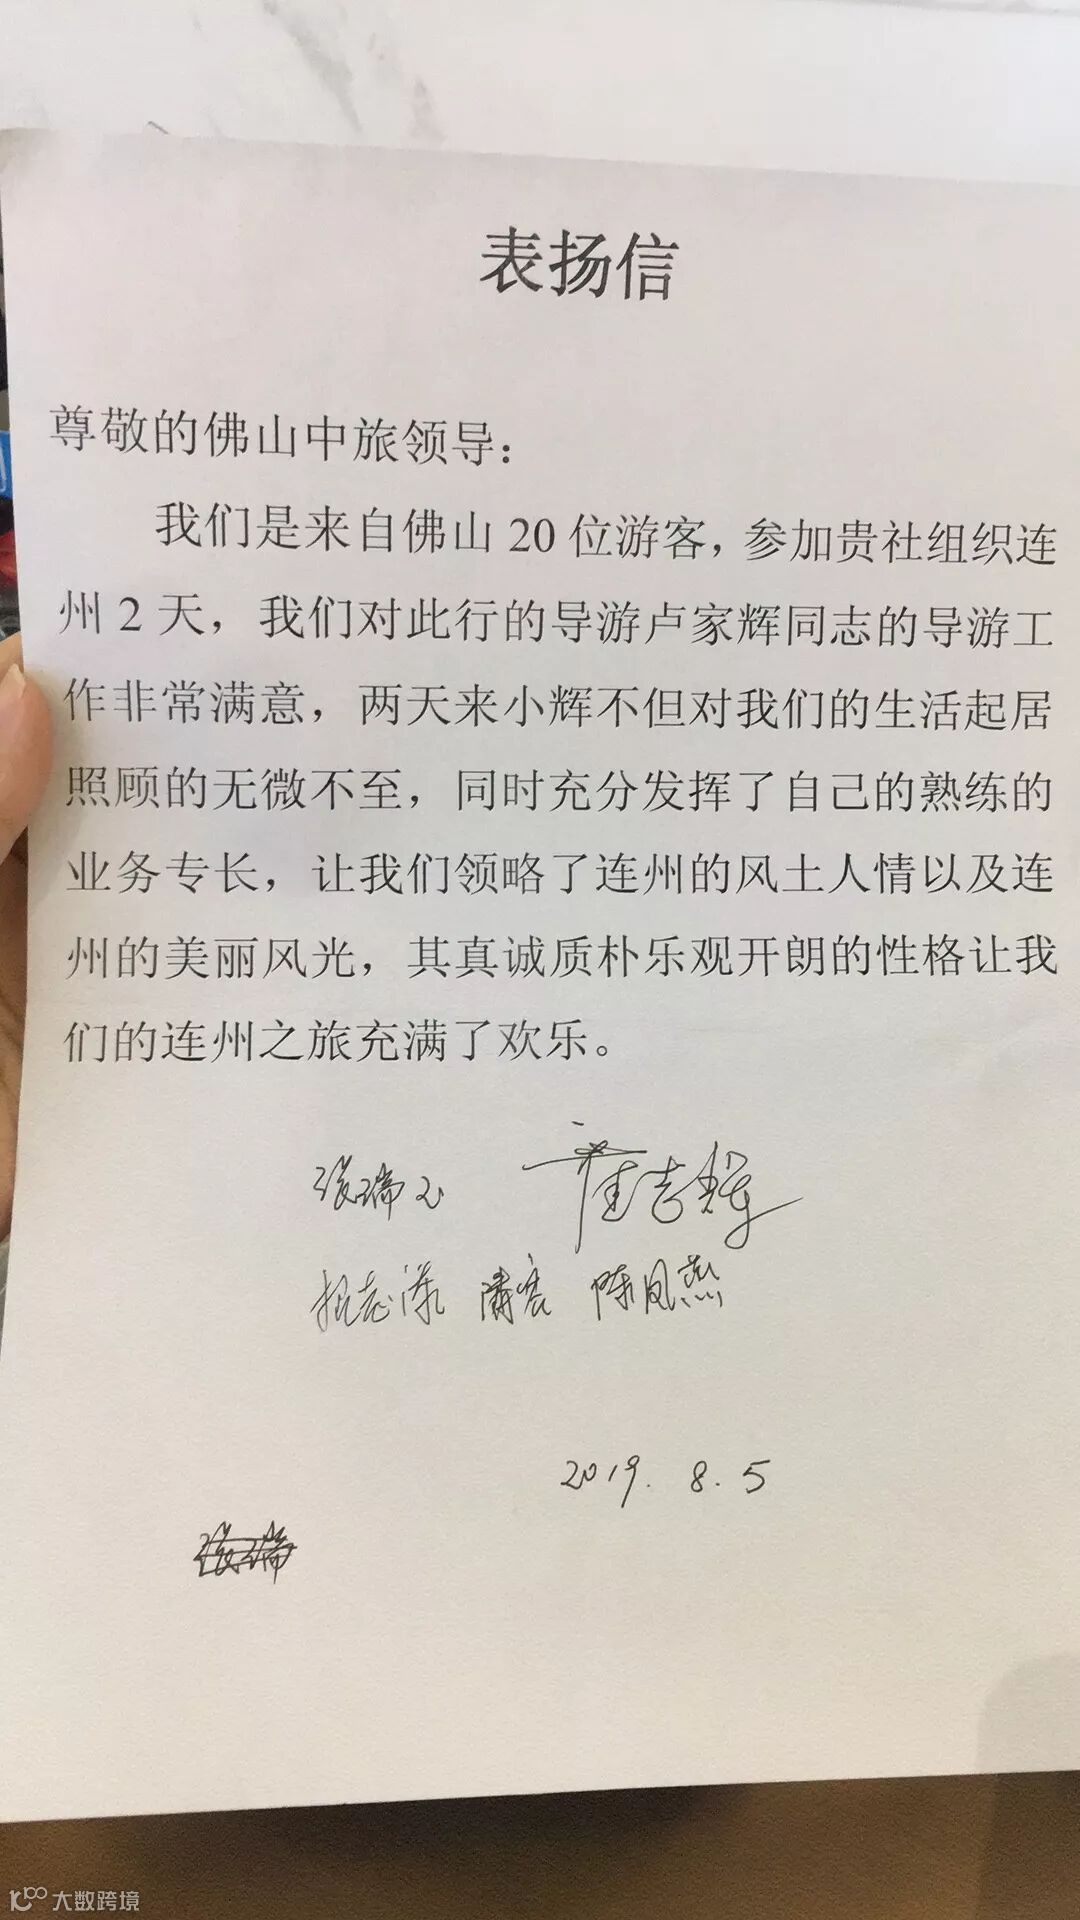 表扬信
尊敬的佛山中旅领导：
我们是来自佛山 20 位游客，参加贵社组织连
州 2 天，我们对此行的导游卢家辉同志的导游工
作非常满意，两天来小辉不但对我们的生活起居
照顾的无微不至，同时充分发挥了自己的熟练的
业务专长，让我们领略了连州的风土人情以及连
州的美丽风光，其真诚质朴乐观开朗的性格让我
们的连州之旅充满了欢乐。
张瑞玉
陈凤燕
2019. 8. 5
大数跨境